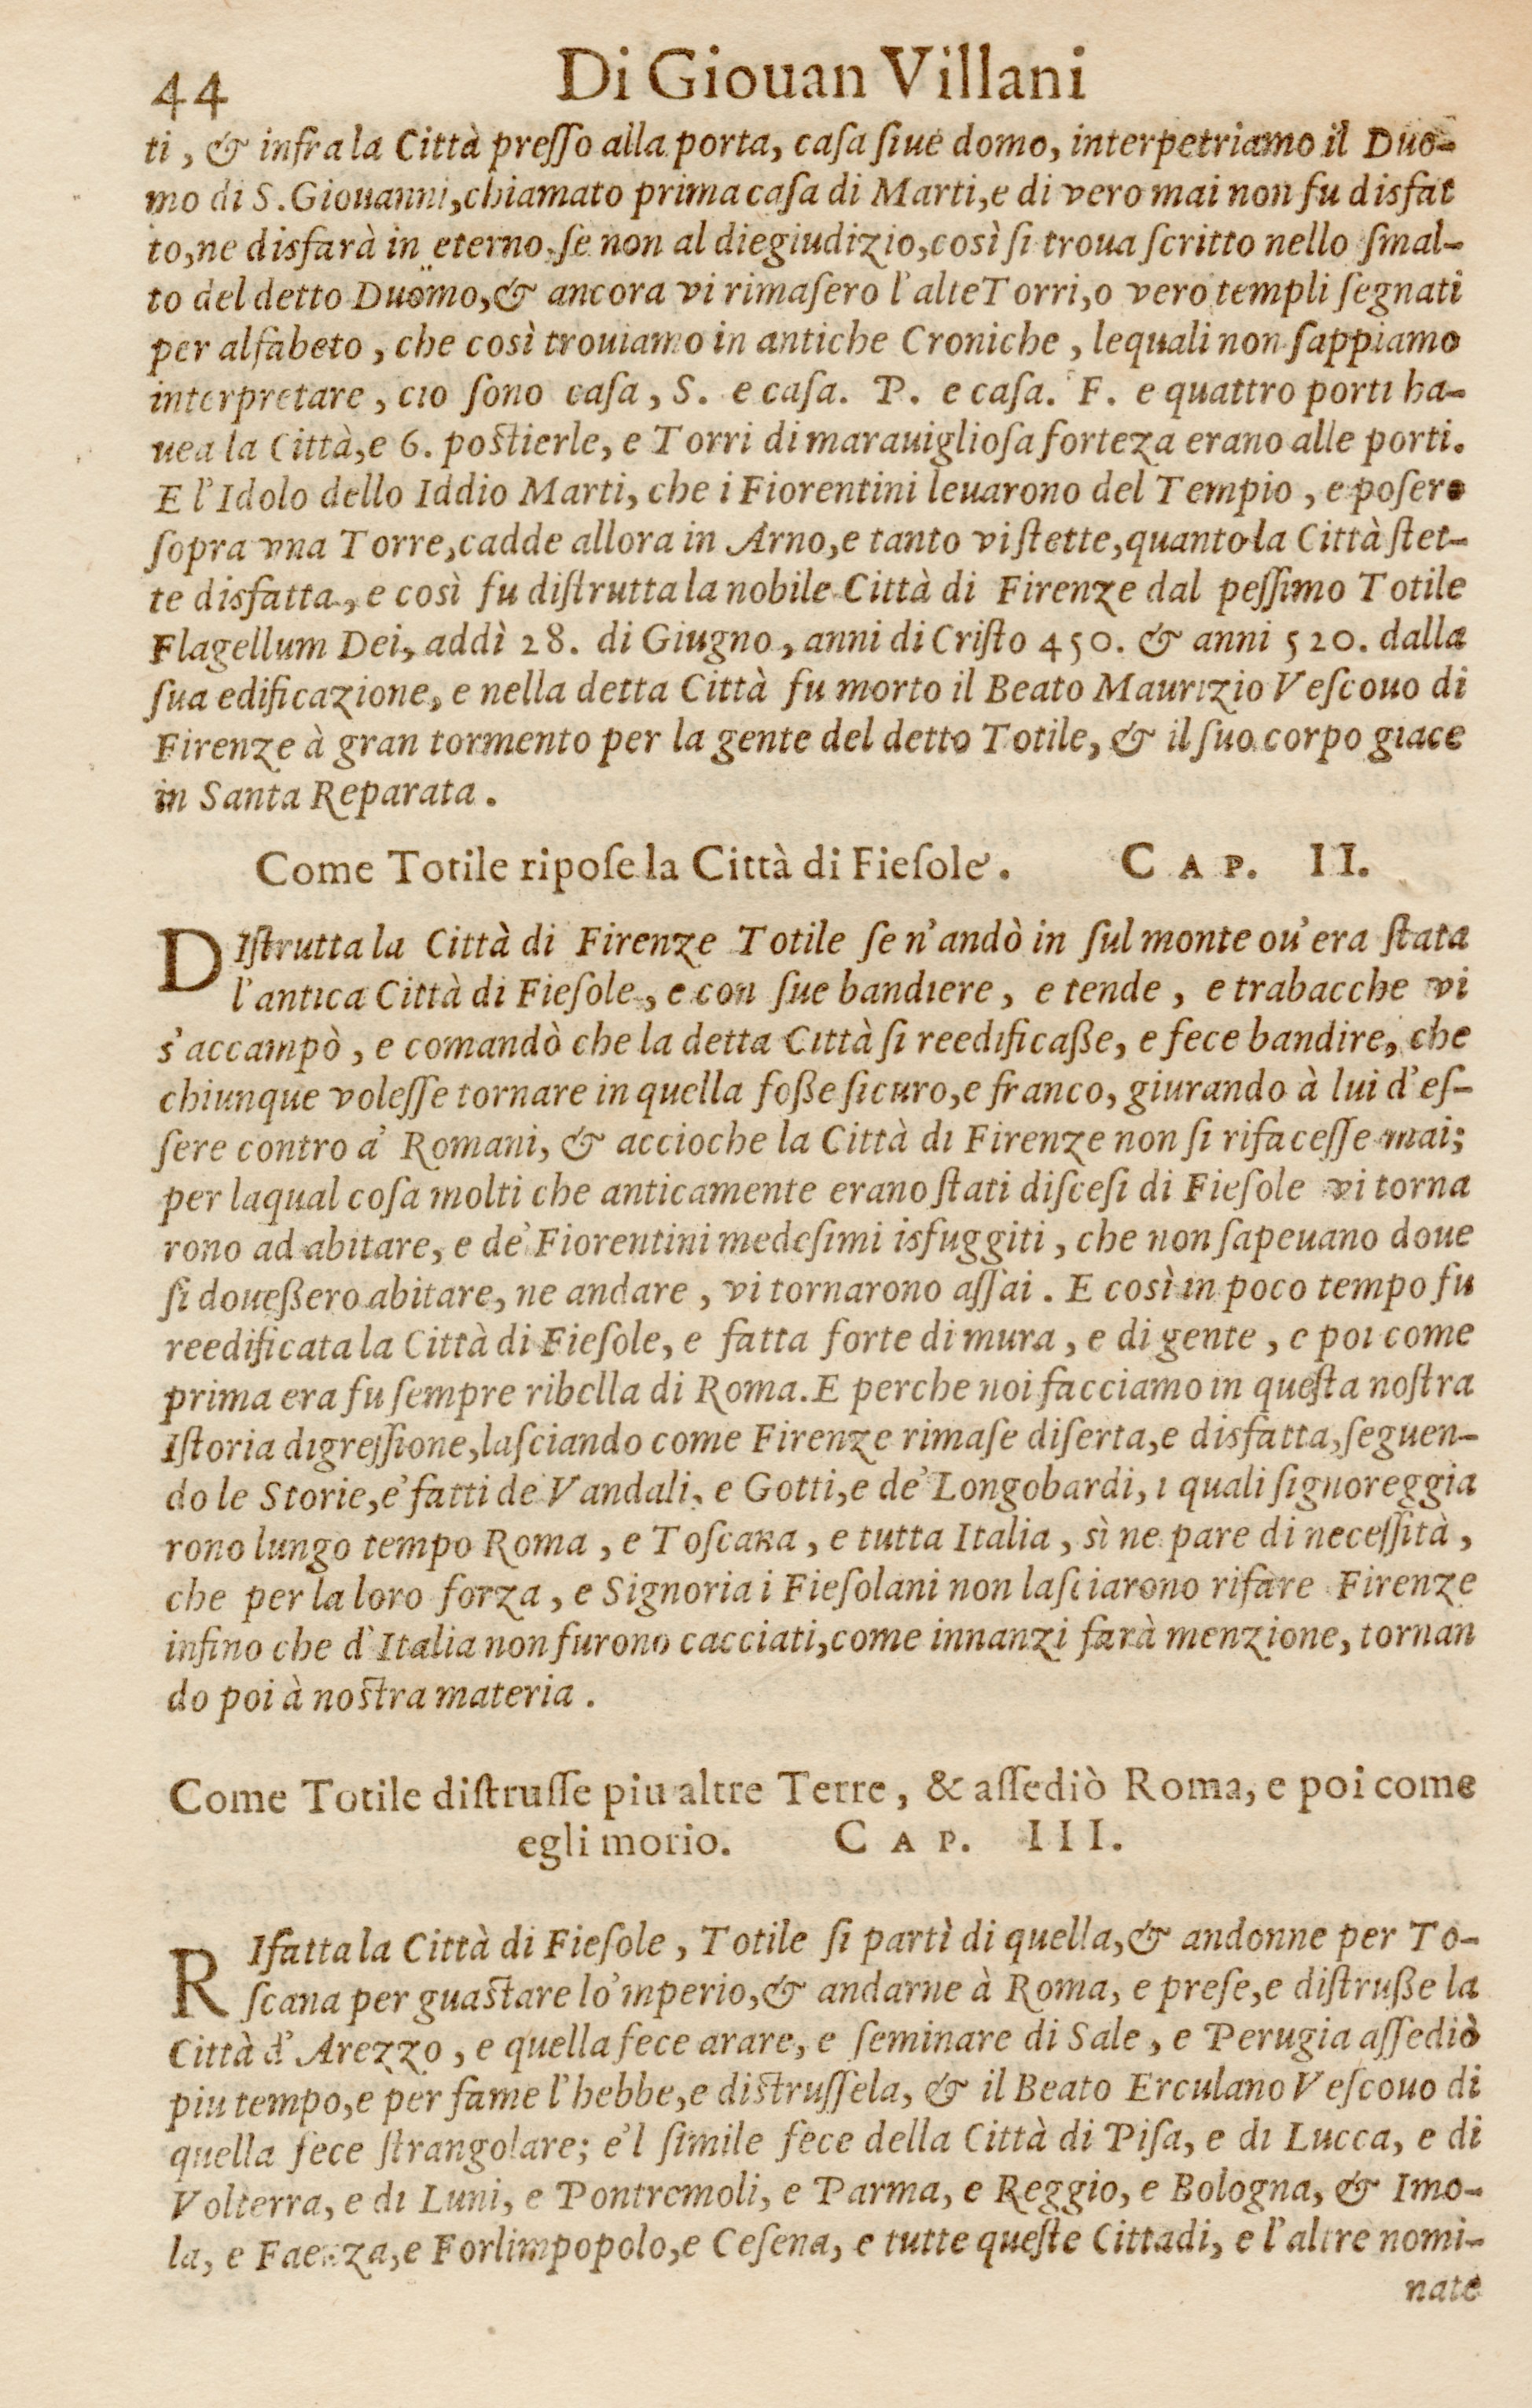 44 Di Giouan Villani
ti, & infra la Città preſſo alla porta, caſa ſiue domo, interpetriamo il Duo-
mo di S. Giouanni, chiamato prima caſa di Marti, e di vero mai non fu disfat
to, ne disfarà in eterno, ſe non al diegiudizio, così ſi troua ſcritto nello ſmal-
to del detto Duomo, & ancora vi rimaſero l'alte Torri, o vero templi ſegnati
per alfabeto, che così trouiamo in antiche Croniche, lequali non ſappiamo
interpretare, cio ſono caſa, S. e caſa. P. e caſa. F. e quattro porti ha-
uea la Città, e 6. poſtierle, e Torri di marauiglioſa forteza erano alle porti.
E l'Idolo dello Iddio Marti, che i Fiorentini leuarono del Tempio, e poſero
ſopra vna Torre, cadde allora in Arno, e tanto vi ſtette, quanto la Città ſtet-
te disfatta, e così fu diſtrutta la nobile Città di Firenze dal peſſimo Totile
Flagellum Dei, addì 28. di Giugno, anni di Criſto 450. & anni 520. dalla
ſua edificazione, e nella detta Città fu morto il Beato Maurizio Veſcouo di
Firenze à gran tormento per la gente del detto Totile, & il ſuo corpo giace
in Santa Reparata.
Come Totile ripoſe la Città di Fieſole. CAP. II.
DIſtrutta la Città di Firenze Totile ſe n'andò in ſul monte ou'era ſtata
l'antica Città di Fieſole, e con ſue bandiere, e tende, e trabacche vi
s'accampò, e comandò che la detta Città ſi reedificaße, e fece bandire, che
chiunque voleſſe tornare in quella foße ſicuro, e franco, giurando à lui d'eſ-
ſere contro a' Romani, & accioche la Città di Firenze non ſi rifaceſſe mai;
per laqual coſa molti che anticamente erano ſtati diſceſi di Fieſole vi torna
rono ad abitare, e de' Fiorentini medeſimi isfuggiti, che non ſapeuano doue
ſi doueßero abitare, ne andare, vi tornarono aſſai. E così in poco tempo fu
reedificata la Città di Fieſole, e fatta forte di mura, e di gente, e poi come
prima era fu ſempre ribella di Roma. E perche noi facciamo in queſta noſtra
Iſtoria digreſſione, laſciando come Firenze rimaſe diſerta, e disfatta, ſeguen-
do le Storie, e' fatti de Vandali, e Gotti, e de' Longobardi, i quali ſignoreggia
rono lungo tempo Roma, e Toſcana, e tutta Italia, sì ne pare di neceſſità,
che per la loro forza, e Signoria i Fieſolani non laſciarono rifare Firenze
infino che d'Italia non furono cacciati, come innanzi farà menzione, tornan
do poi à noſtra materia.
Come Totile diſtruſſe piu altre Terre, & aſſediò Roma, e poi come
egli morio. CAP. III.
RIfatta la Città di Fieſole, Totile ſi partì di quella, & andonne per To-
ſcana per guaſtare lo'mperio, & andarne à Roma, e preſe, e diſtruße la
Città d'Arezzo, e quella fece arare, e ſeminare di Sale, e Perugia aſſediò
piu tempo, e per fame l'hebbe, e diſtruſſela, & il Beato Erculano Veſcouo di
quella fece ſtrangolare; e'l ſimile fece della Città di Piſa, e di Lucca, e di
Volterra, e di Luni, e Pontremoli, e Parma, e Reggio, e Bologna, & Imo-
la, e Faenza, e Forlimpopolo, e Ceſena, e tutte queſte Cittadi, e l'altre nomi-
nate